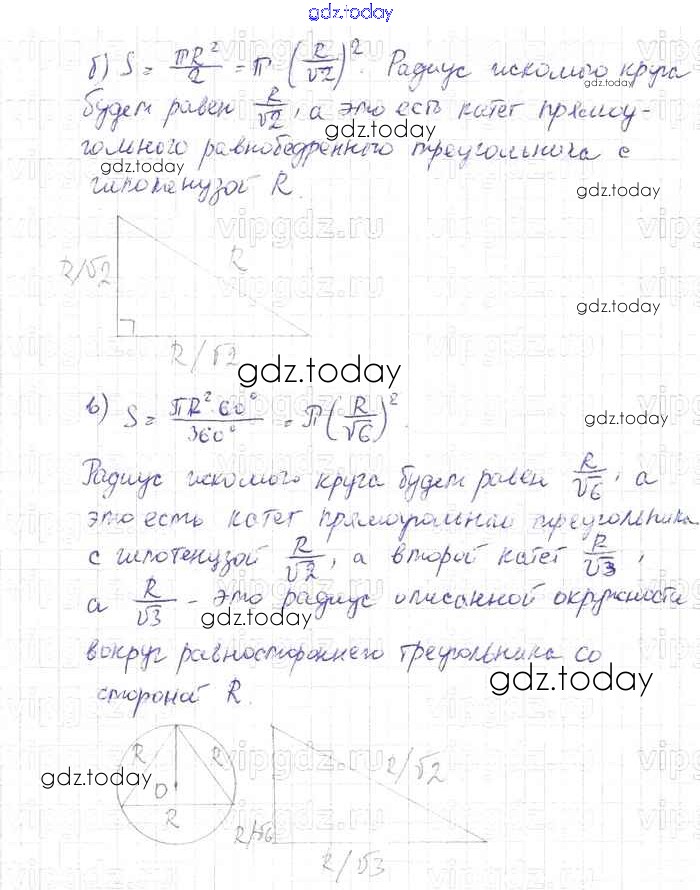 gdz.today
б) S = πR²/2 = π (R/√2)². Радиус искомого круга
будет равен R/√2, а это есть катет прямоу-
gdz.today
гольного равнобедренного треугольника с
gdz.today
гипотенузой R.
gdz.today
R/√2
R
gdz.today
R/√2
gdz.today
в) S = πR²·60°/360° = π(R/√6)².
gdz.today
Радиус искомого круга будет равен R/√6, а
это есть катет прямоугольного треугольника
gdz.today
с гипотенузой R/√2, а второй катет R/√3,
а R/√3 - это радиус описанной окружности
gdz.today
вокруг равностороннего треугольника со
gdz.today
стороной R.
R
R
O
R
gdz.today
R/√2
R/√6
R/√3
gdz.today